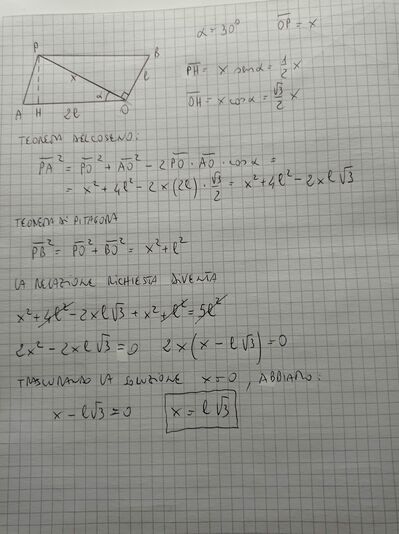 α = 30°   O̅P̅ = x
P   B
x   l
α
A   H   2l   O
P̅H̅ = x senα = 1/2 x
O̅H̅ = x cosα = √3/2 x
TEOREMA DEL COSENO:
P̅A̅² = P̅O̅² + A̅O̅² - 2 P̅O̅ · A̅O̅ · cosα =
= x² + 4l² - 2x(2l) · √3/2 = x² + 4l² - 2xl√3
TEOREMA DI PITAGORA
P̅B̅² = P̅O̅² + B̅O̅² = x² + l²
LA RELAZIONE RICHIESTA DIVENTA
x² + 4l² - 2xl√3 + x² + l² = 5l²
2x² - 2xl√3 = 0   2x(x - l√3) = 0
TRASCURANDO LA SOLUZIONE x = 0, ABBIAMO:
x - l√3 = 0   x = l√3